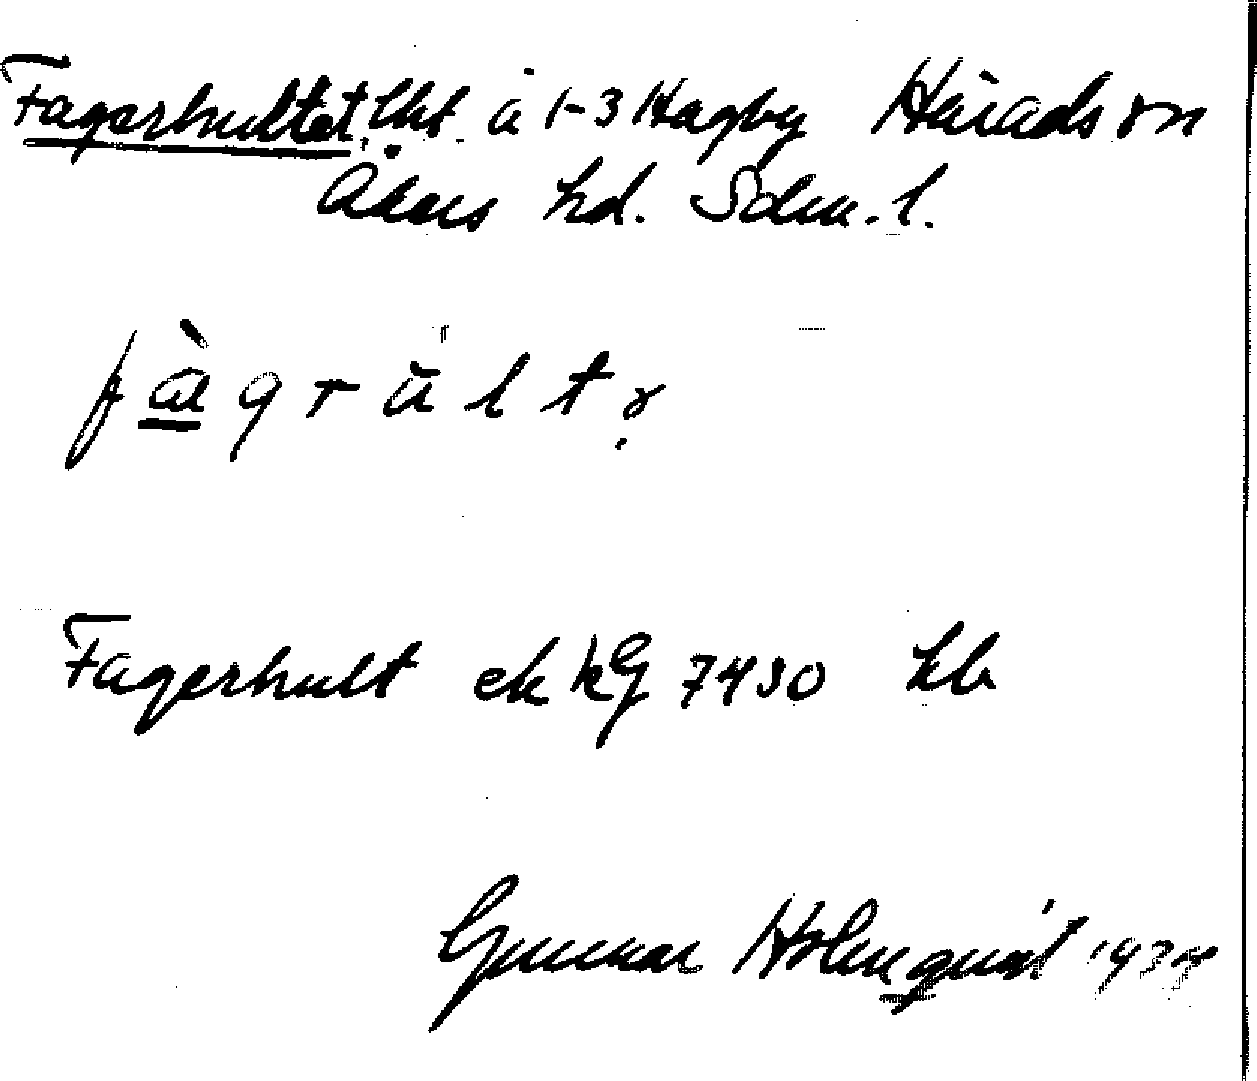 Fagerhultet, lht. å 1-3 Hagby Härads sn
Åkers hd. Sdm. l.
fàgrŭltɤ
Fagerhult ek kG 7430 hb
Gunnar Holmquist